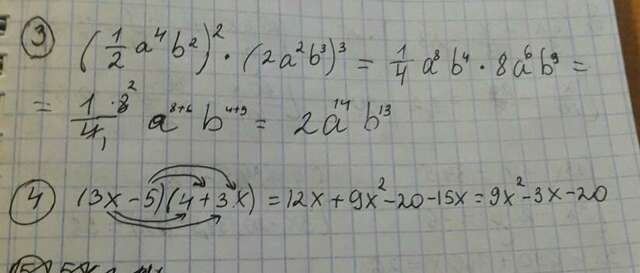 ③ (1/2 a⁴b²)² · (2a²b³)³ = 1/4 a⁸b⁴ · 8a⁶b⁹ =
= 1·8²/4₁ a⁸⁺⁶ b⁴⁺⁹ = 2a¹⁴b¹³
④ (3x-5)(4+3x) = 12x+9x²-20-15x = 9x²-3x-20